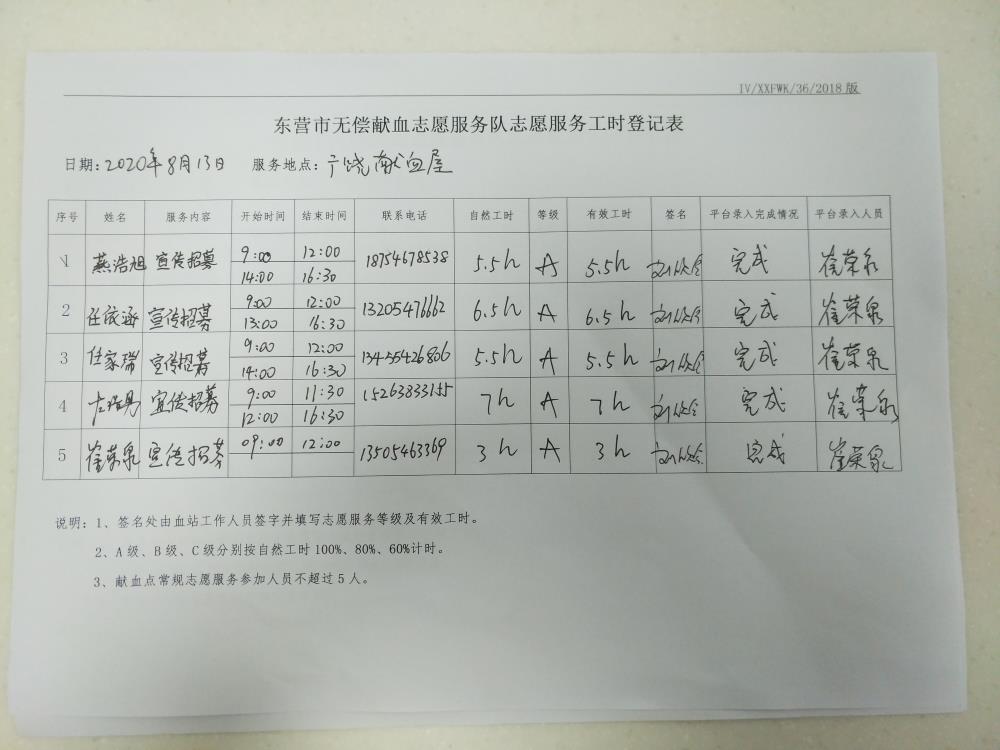 IV/XXFWK/36/2018版
东营市无偿献血志愿服务队志愿服务工时登记表
日期:2020年8月13日 服务地点:广饶献血屋
序号 姓名 服务内容 开始时间 结束时间 联系电话 自然工时 等级 有效工时 签名 平台录入完成情况 平台录入人员
1 燕浩旭 宣传招募 9:00 12:00 18754678538 5.5h A 5.5h 完成 崔荣泉
14:00 16:30
2 任依涵 宣传招募 9:00 12:00 13205476662 6.5h A 6.5h 完成 崔荣泉
13:00 16:30
3 任家瑞 宣传招募 9:00 12:00 13455426806 5.5h A 5.5h 完成 崔荣泉
14:00 16:30
4 宣传招募 9:00 11:30 15263833155 7h A 7h 完成 崔荣泉
12:00 16:30
5 崔荣泉 宣传招募 09:00 12:00 13505463369 3h A 3h 完成 崔荣泉
说明:1、签名处由血站工作人员签字并填写志愿服务等级及有效工时。
2、A级、B级、C级分别按自然工时100%、80%、60%计时。
3、献血点常规志愿服务参加人员不超过5人。